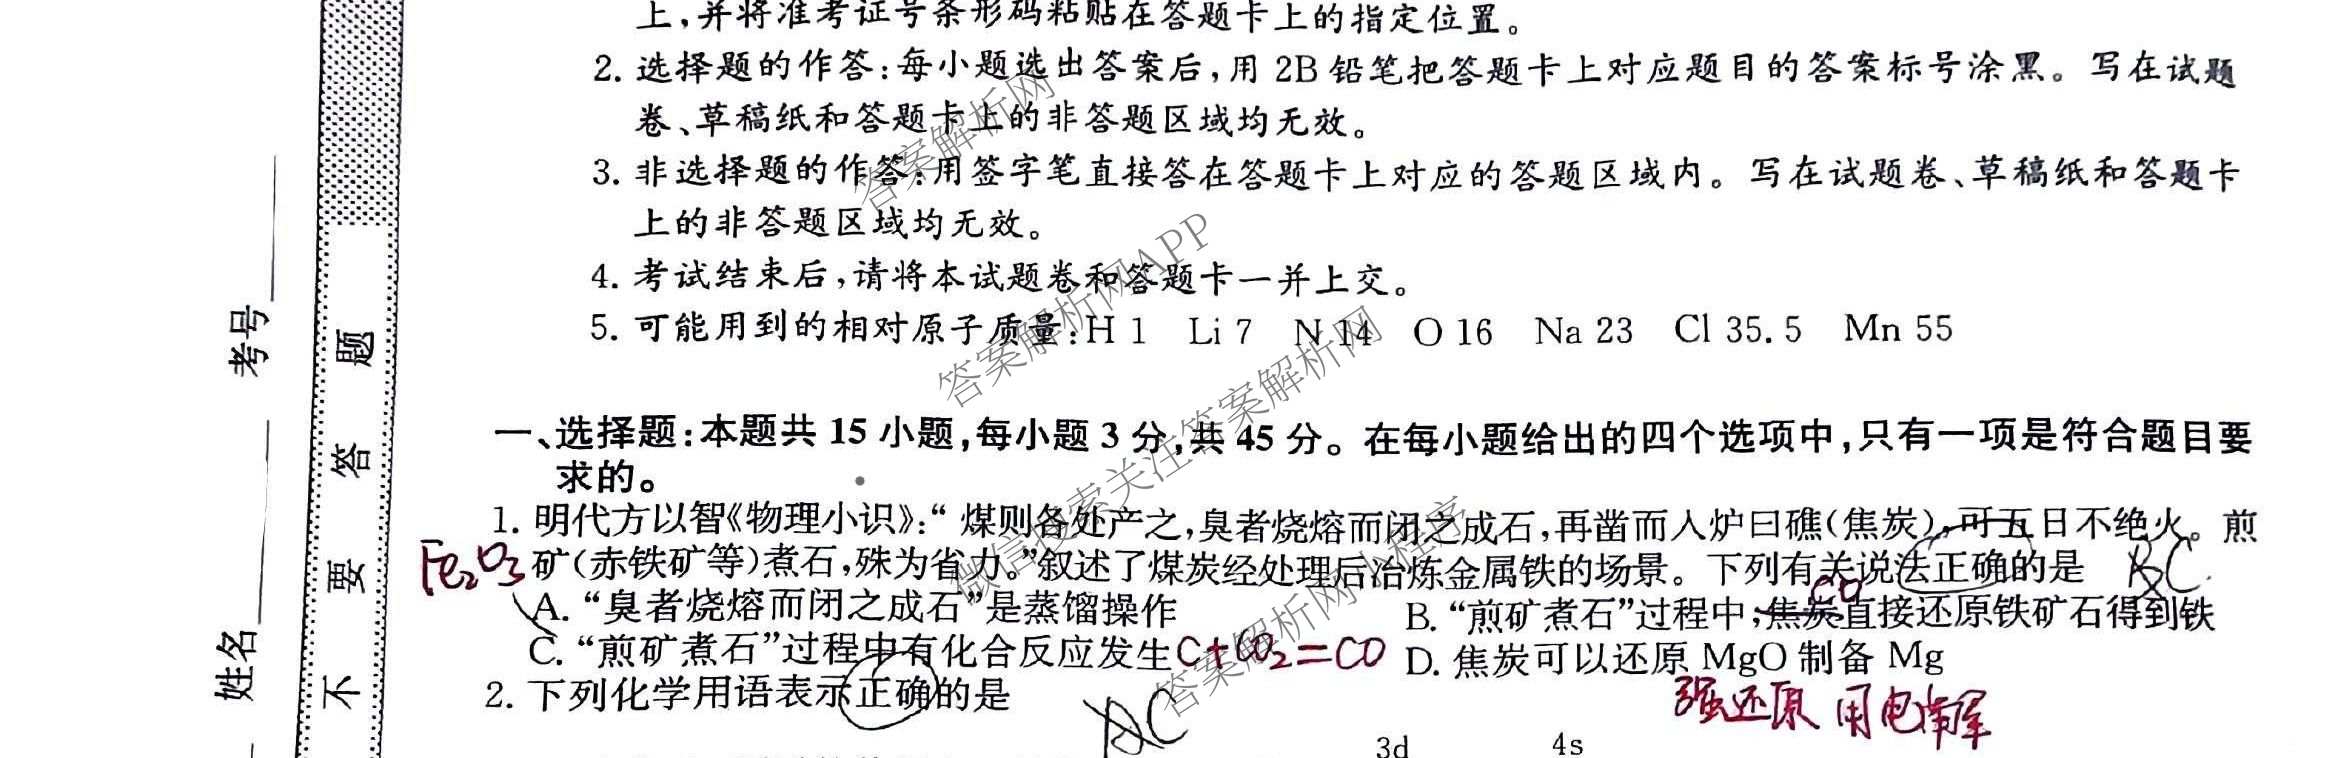 上,并将准考证号条形码粘贴在答题卡上的指定位置。
2. 选择题的作答:每小题选出答案后,用 2B 铅笔把答题卡上对应题目的答案标号涂黑。写在试题
卷、草稿纸和答题卡上的非答题区域均无效。
3. 非选择题的作答:用签字笔直接答在答题卡上对应的答题区域内。写在试题卷、草稿纸和答题卡
上的非答题区域均无效。
4. 考试结束后,请将本试题卷和答题卡一并上交。
5. 可能用到的相对原子质量:H 1 Li 7 N 14 O 16 Na 23 Cl 35.5 Mn 55
一、选择题:本题共 15 小题,每小题 3 分,共 45 分。在每小题给出的四个选项中,只有一项是符合题目要
求的。
1. 明代方以智《物理小识》:“煤则各处产之,臭者烧熔而闭之成石,再凿而入炉曰礁(焦炭),可五日不绝火。煎
Fe₂O₃ 矿(赤铁矿等)煮石,殊为省力。”叙述了煤炭经处理后冶炼金属铁的场景。下列有关说法正确的是
CO
A. “臭者烧熔而闭之成石”是蒸馏操作 B. “煎矿煮石”过程中,焦炭直接还原铁矿石得到铁
C. “煎矿煮石”过程中有化合反应发生 C+CO₂=CO D. 焦炭可以还原 MgO 制备 Mg
强还原 用电解
2. 下列化学用语表示正确的是
3d 4s
考号
姓名
不 要 答 题
答案解析网
答案解析网APP
微信搜索关注答案解析网
答案解析网小程序